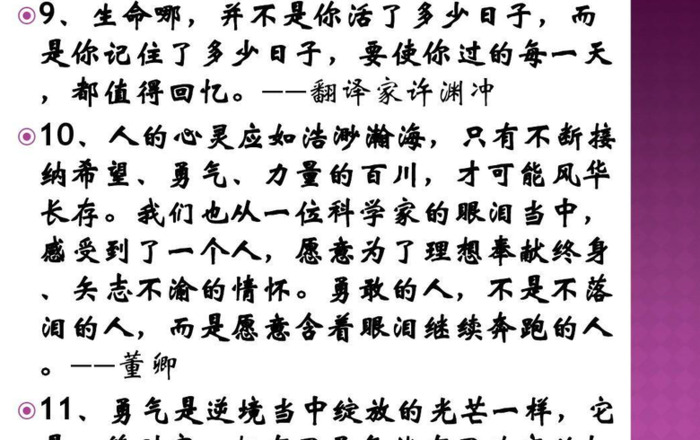 9、生命哪，并不是你活了多少日子，而
是你记住了多少日子，要使你过的每一天
，都值得回忆。——翻译家许渊冲
10、人的心灵应如浩渺瀚海，只有不断接
纳希望、勇气、力量的百川，才可能风华
长存。我们也从一位科学家的眼泪当中，
感受到了一个人，愿意为了理想奉献终身
、矢志不渝的情怀。勇敢的人，不是不落
泪的人，而是愿意含着眼泪继续奔跑的人
。——董卿
11、勇气是逆境当中绽放的光芒一样，它